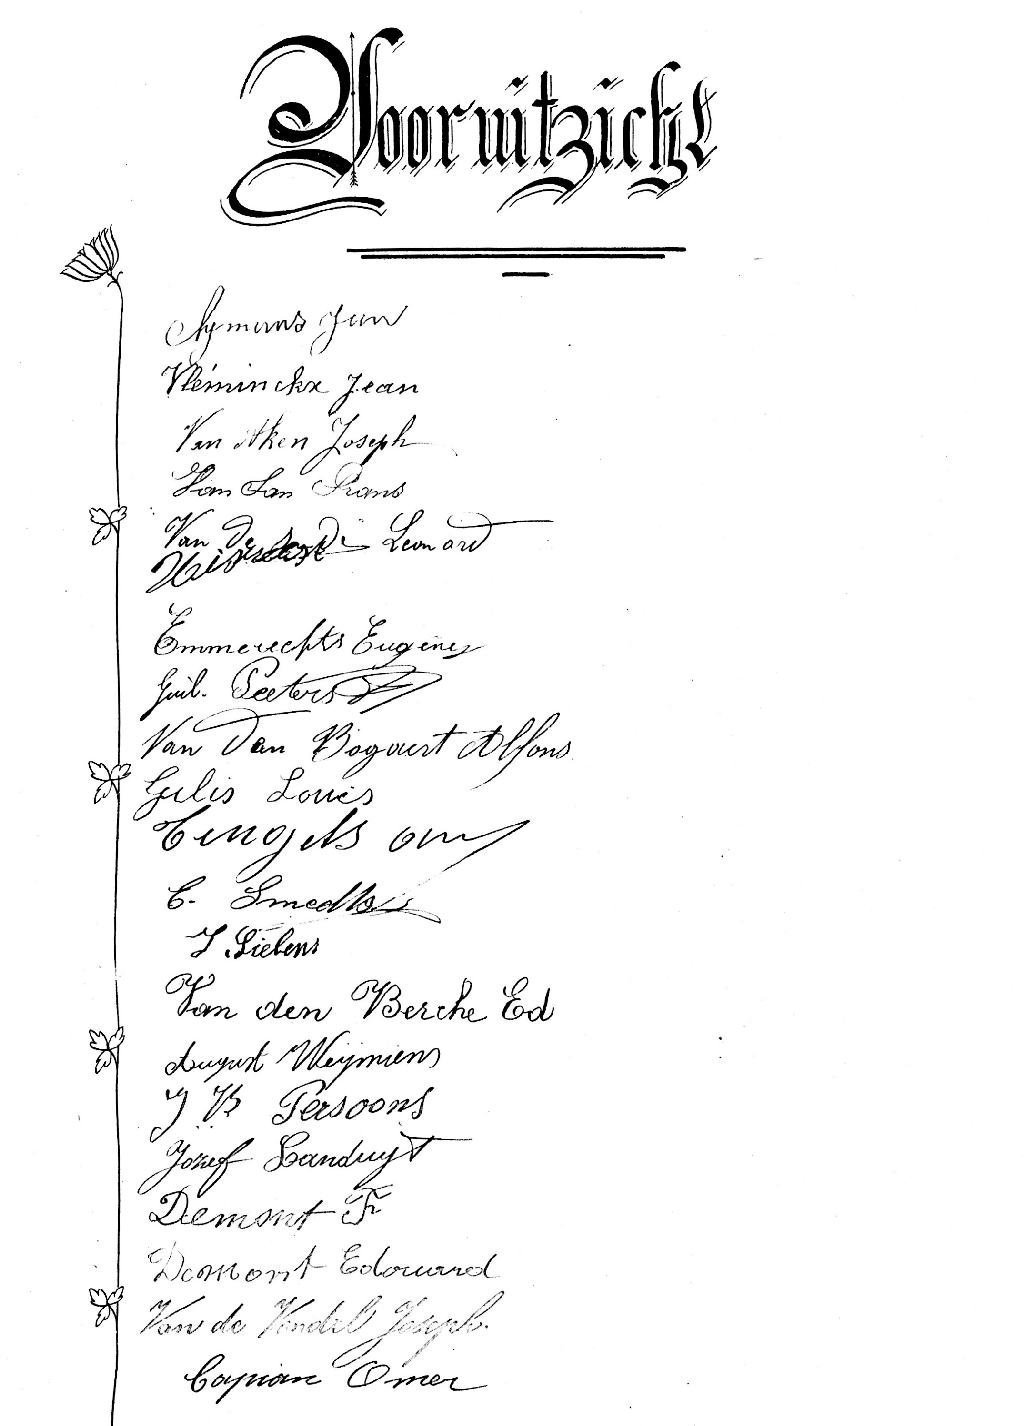 Vooruitzicht
Jan
Vléminckx Jean
Van Aken Joseph
Van San Frans
Van De Leonard
Emmerechts Eugène
Guil. Peeters
Van Dan Bogaert Alfons
Gilis Louis
C.
J Siebens
Van den Berche Ed
August Weymiens
J B Persoons
Jozef Landuyt
Demont Fr
Demont Edouard
Van de Vondel Joseph.
Omer